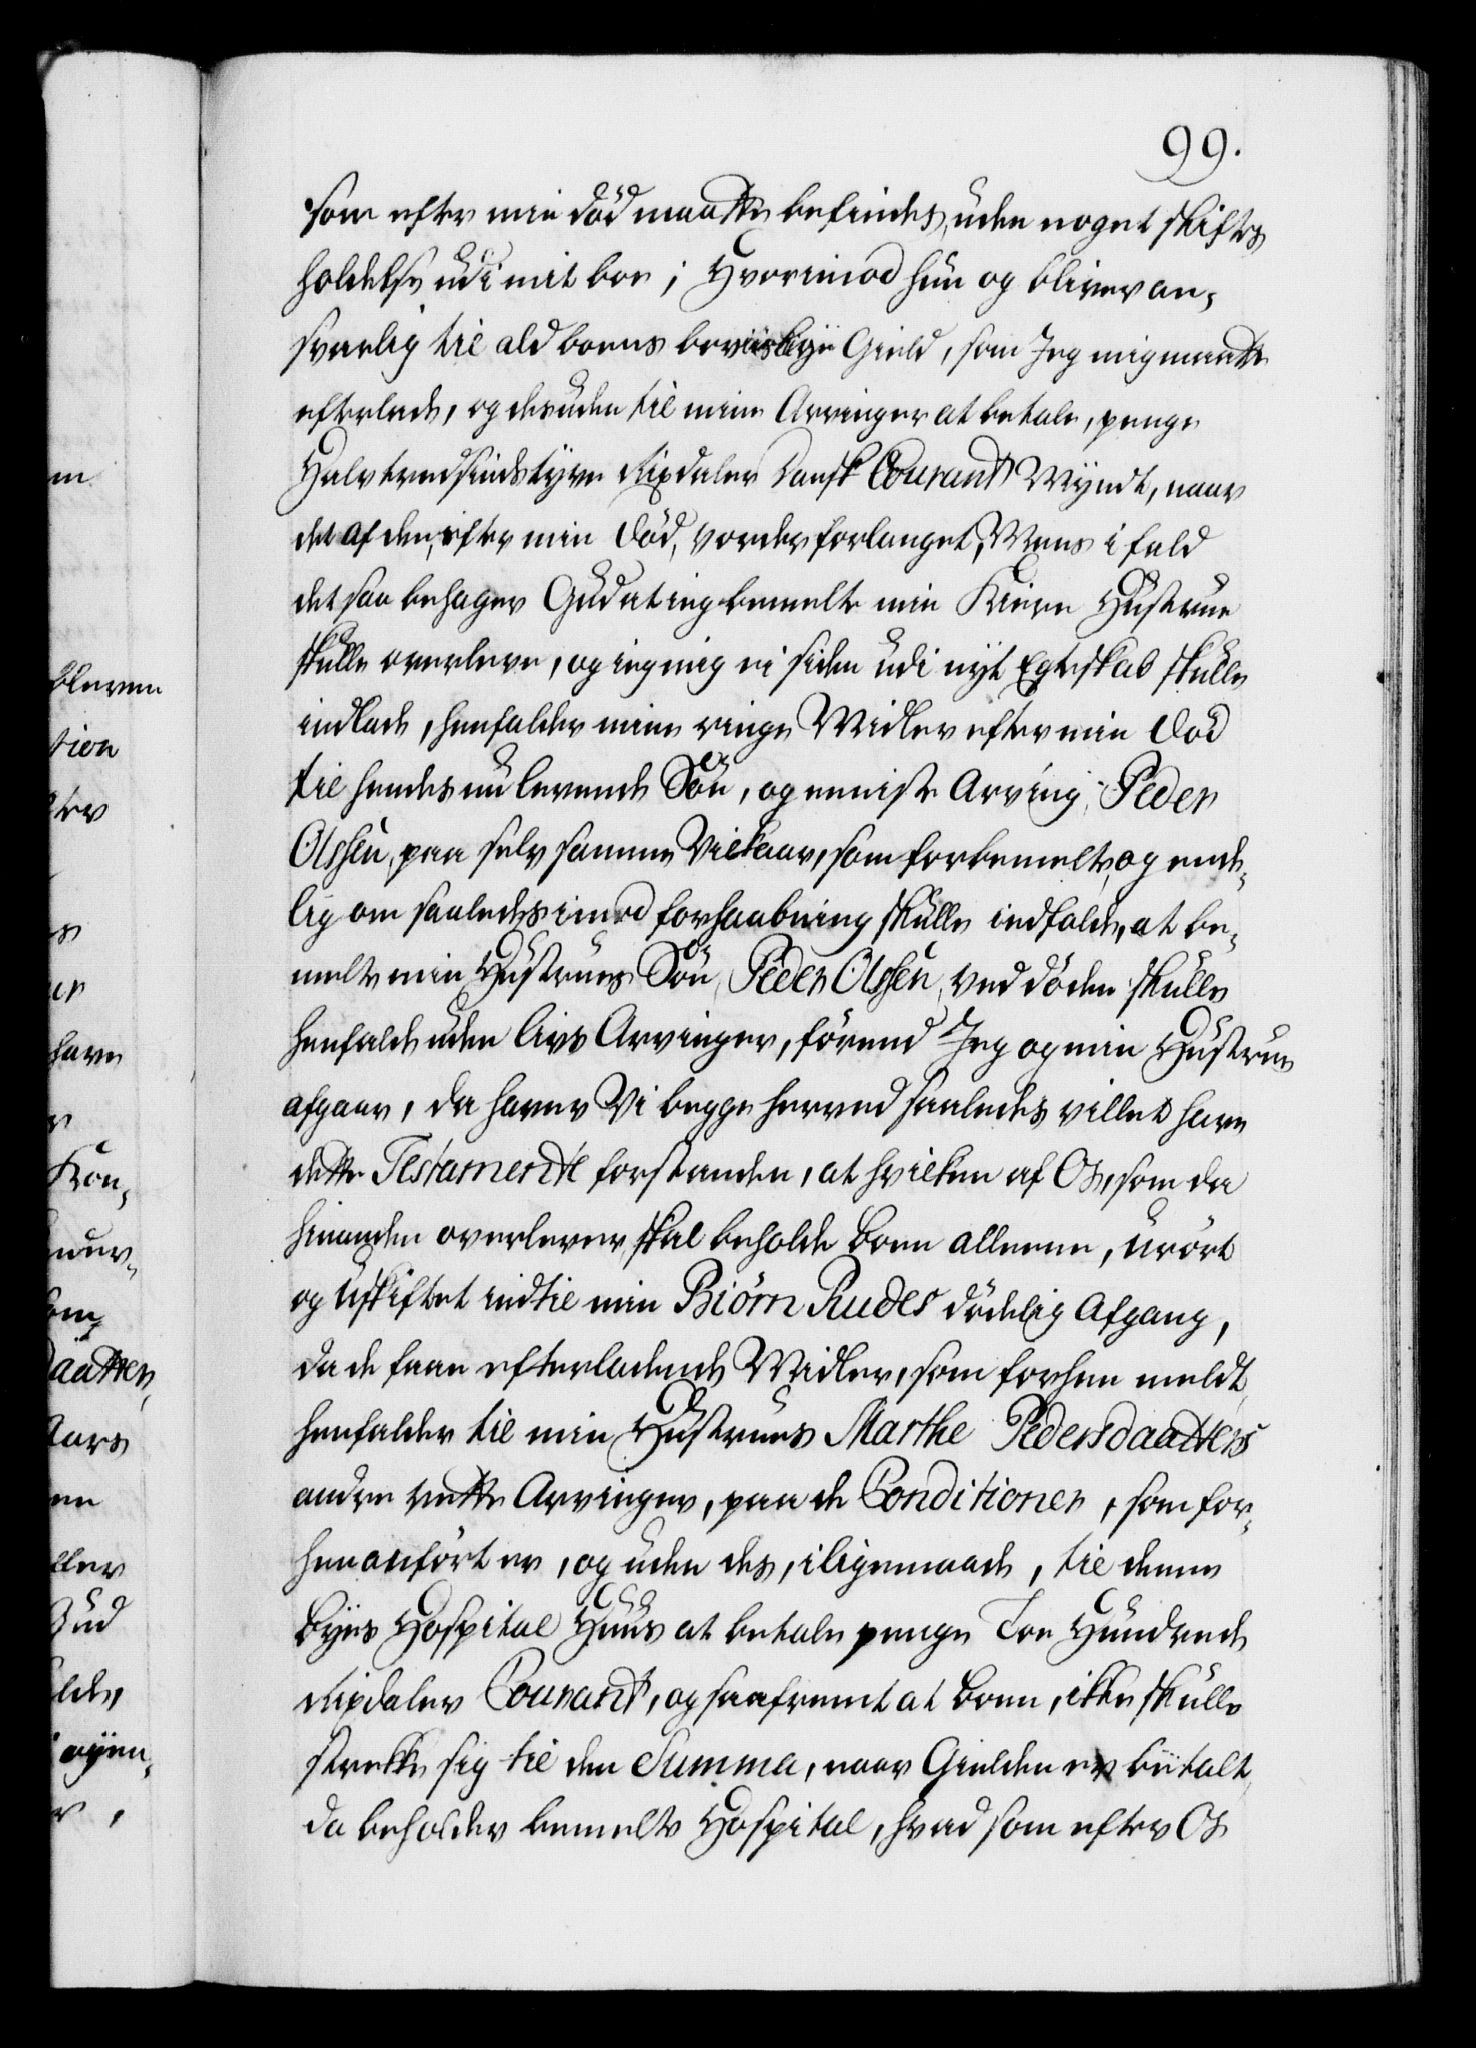 99.
som efter min död maatte befindes, uden noget skiftes
holdelse udi mit boe; Hvorimod hun og bliver an-
svarlig til ald boens beviislige Gield, som Jeg mig maatte
efterlade, og desuden til mine Arvinger at betale, penge
Halvtredsindstyve Rixdaler Dansk Courant Myndt, naar
det af dem, efter min Död, vorder forlanget, Mens i fald
det saa behager Gud at ieg bemelte min Kiere Hustrue
skulle overleve, og ieg mig ei siden udi nyt Egteskab skulle
indlade, henfalder mine ringe Midler efter min Död
til hendes nu levende Sön, og eeniste Arving, Peder
Olssen, paa selv samme Vilkaar, som forbemelte, og ende-
lig om saaledes imod forhaabning skulle indfalde, at be-
melte min Hustrues Sön, Peder Olssen, ved döden skulle
henfalde uden livs Arvinger, förend Jeg og min Hustrue
afgaar, da haver Vi begge herved saaledes villet have
dette Testamente forstanden, at hvilken af Os, som da
hinanden overlever, skal beholde boen alleene, urört
og uskiftet indtil min Biörn Rudes dödelig Afgang,
da de faae efterladende Midler, som forhen meldt,
henfalder til min Hustrues Marthe Pedersdaatters
andre rette Arvinger, paa de Conditioner, som for-
hen anfört er, og uden des, iligemaade, til denne
Byes Hospital Huus at betale penge Toe Hundrede
Rixdaler Courant, og saafremt at boen, ikke skulle
strekke sig til den Summa, naar Gielden er betalt,
da beholder bemelte Hospital, hvad som efter Os